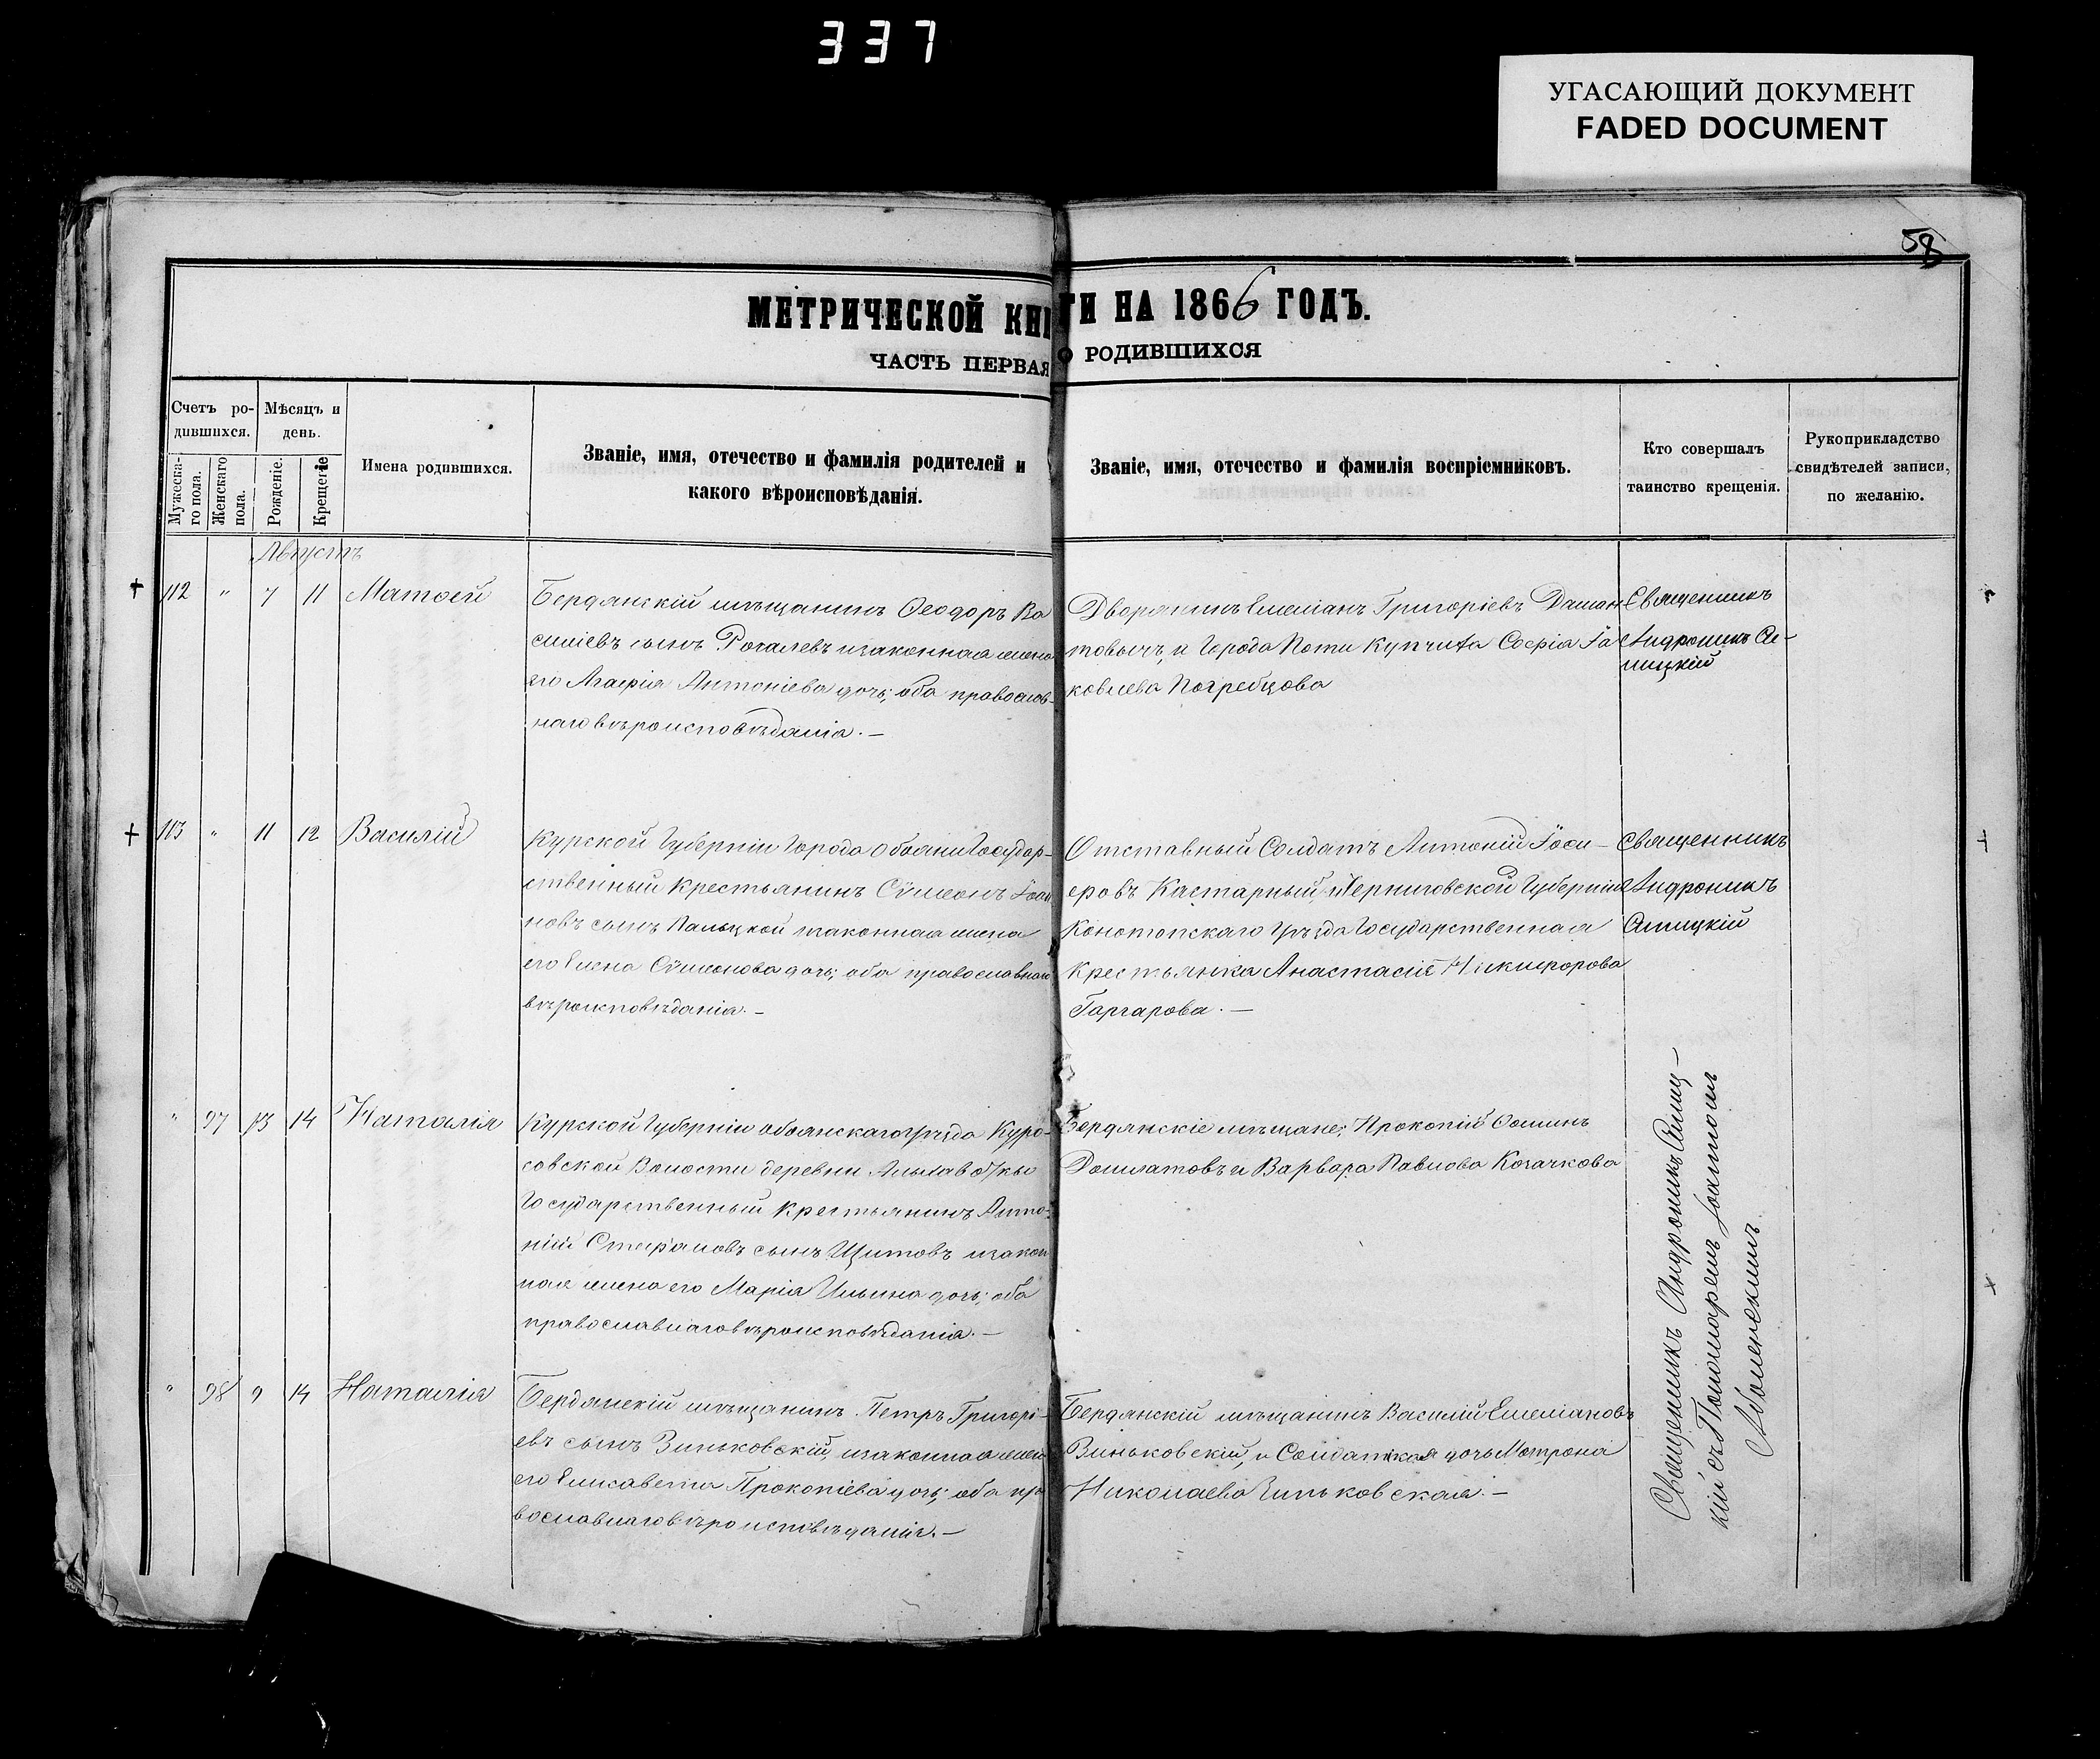 337
УГАСАЮЩИЙ ДОКУМЕНТ
FADED DOCUMENT
58
МЕТРИЧЕСКОЙ КНИГИ НА 1866 ГОДЪ.
ЧАСТЬ ПЕРВАЯ О РОДИВШИХСЯ
Счетъ ро-
дившихся.
Мужеска-
го пола.
Женскаго
пола.
Мѣсяцъ и
день.
Рожденіе.
Крещеніе
Имена родившихся.
Званіе, имя, отечество и фамилія родителей и
какого вѣроисповѣданія.
Званіе, имя, отечество и фамилія воспріемниковъ.
Кто совершалъ
таинство крещенія.
Рукоприкладство
свидѣтелей записи,
по желанію.
Августъ
112 " 7 11 Матѳей
Бердянскій мѣщанинъ Ѳеодоръ Ва
силіевъ сынъ Рогалевъ изаконная жена
его Агафія Антоніева дочь; оба православ-
наго вѣроисповѣданія. —
Дворянинъ Емеліанъ Григоріевъ
товичъ, и Города Поти купчиха Софія Іа
ковлева Погребцова
Священникъ
Андроникъ Си-
ницкій
113 " 11 12 Василій
Курской Губерніи Города Обояни Государ-
ственный Крестьянинъ Сѵмеонъ Іоан
новъ сынъ Пальцкой изаконная жена
его Елена Сѵмеонова дочь; оба православнаго
вѣроисповѣданія. —
Отставный Солдатъ Антоній Іоси-
фовъ Кастарный, и Черниговской Губерніи
Конотопскаго Уѣзда Государственная
Крестьянка Анастасія Никифорова
Гаргарова. —
Священникъ
Андроникъ
Синицкій
" 97 13 14 Наталія
Курской Губерніи обоянскаго Уѣзда Куро-
совской Волости деревни
Государственный Крестьянинъ Анто-
ній Стефановъ сынъ Щитовъ изакон
ная жена его Марія Ильина дочь; оба
православнаго вѣроисповѣданія. —
Бердянскіе мѣщане; Прокопій Ѳоминъ
Долматовъ и Варвара Павлова Козачкова
" 98 9 14 Наталія
Бердянскій мѣщанинъ Петръ Григорі-
евъ сынъ Зиньковскій, изаконная жена
его Елисавета Прокопіева дочь; оба пра
вославнаго вѣроисповѣданія. —
Бердянскій мѣщанинъ Василій Емеліановъ
Зиньковскій, и Солдатская дочь Матрона
Николаева Зиньковская. —
Священникъ Андроникъ Синиц-
кій съ Пономаремъ Іоанномъ